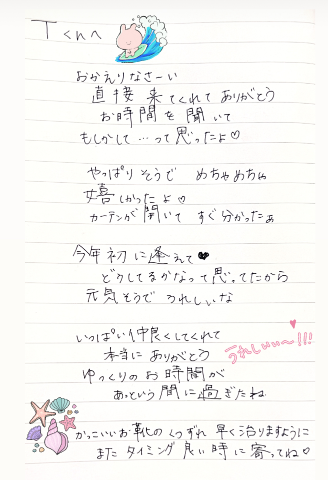 Tくんへ
おかえりなさーい
直接来てくれてありがとう
お時間を聞いて
もしかして…って思ったよ♡
やっぱりそうで めちゃめちゃ
嬉しかったよ♡
カーテンが開いて すぐ分かったぁ
今年初に逢えて♥
どうしてるかなって思ってたから
元気そうで うれしいな
いっぱい仲良くしてくれて
本当にありがとう
うれしいぃ〜!!!
ゆっくりのお時間が
あっという間に過ぎたね
かっこいいお靴のくつずれ 早く治りますように
また タイミング良い時に寄ってね♡